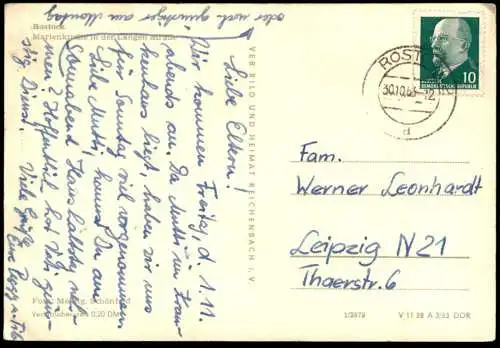 oder noch günstiger am Montag
Rostock
Marienkirche in der Langen Straße
Liebe Eltern!
Wir kommen Freitag, d. 1.11.
abends an. Da Mutti im Kran-
kenhaus liegt, haben wir uns
für Sonntag viel vorgenommen.
Liebe Mutti, kannst Du am
Sonnabend Haushaltstag neh-
men? Hoffentlich hat Vati gün-
stig. Dienst. Viele Grüße
Eure
Foto: Schönfeld
Verbraucherpreis 0,20 DM
VEB BILD UND HEIMAT REICHENBACH I. V.
ROSTOCK
30.10.63-12
d
10
DEUTSCHE
DEMOKRATISCHE REPUBLIK
Fam.
Werner Leonhardt
Leipzig N21
Thaerstr. 6
1/2879
V 11 28 A 3/63 DDR